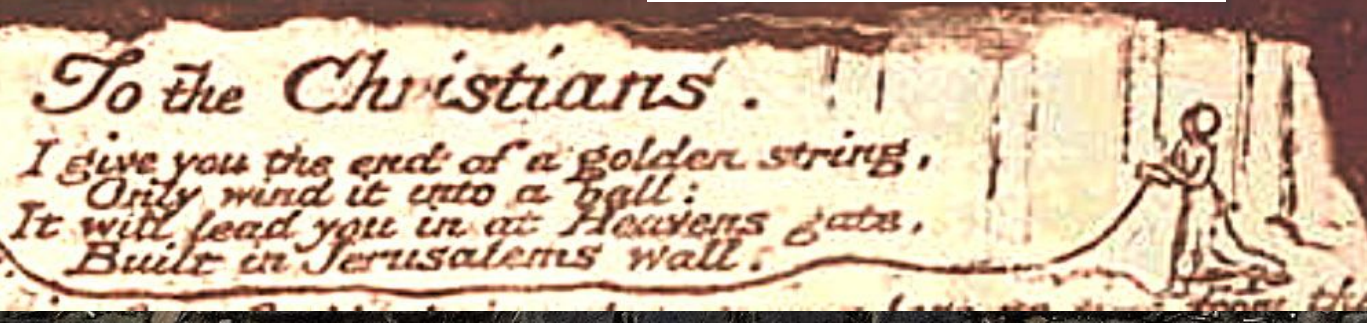 To the Christians.
I give you the end of a golden string,
Only wind it into a ball:
It will lead you in at Heavens gate,
Built in Jerusalems wall.